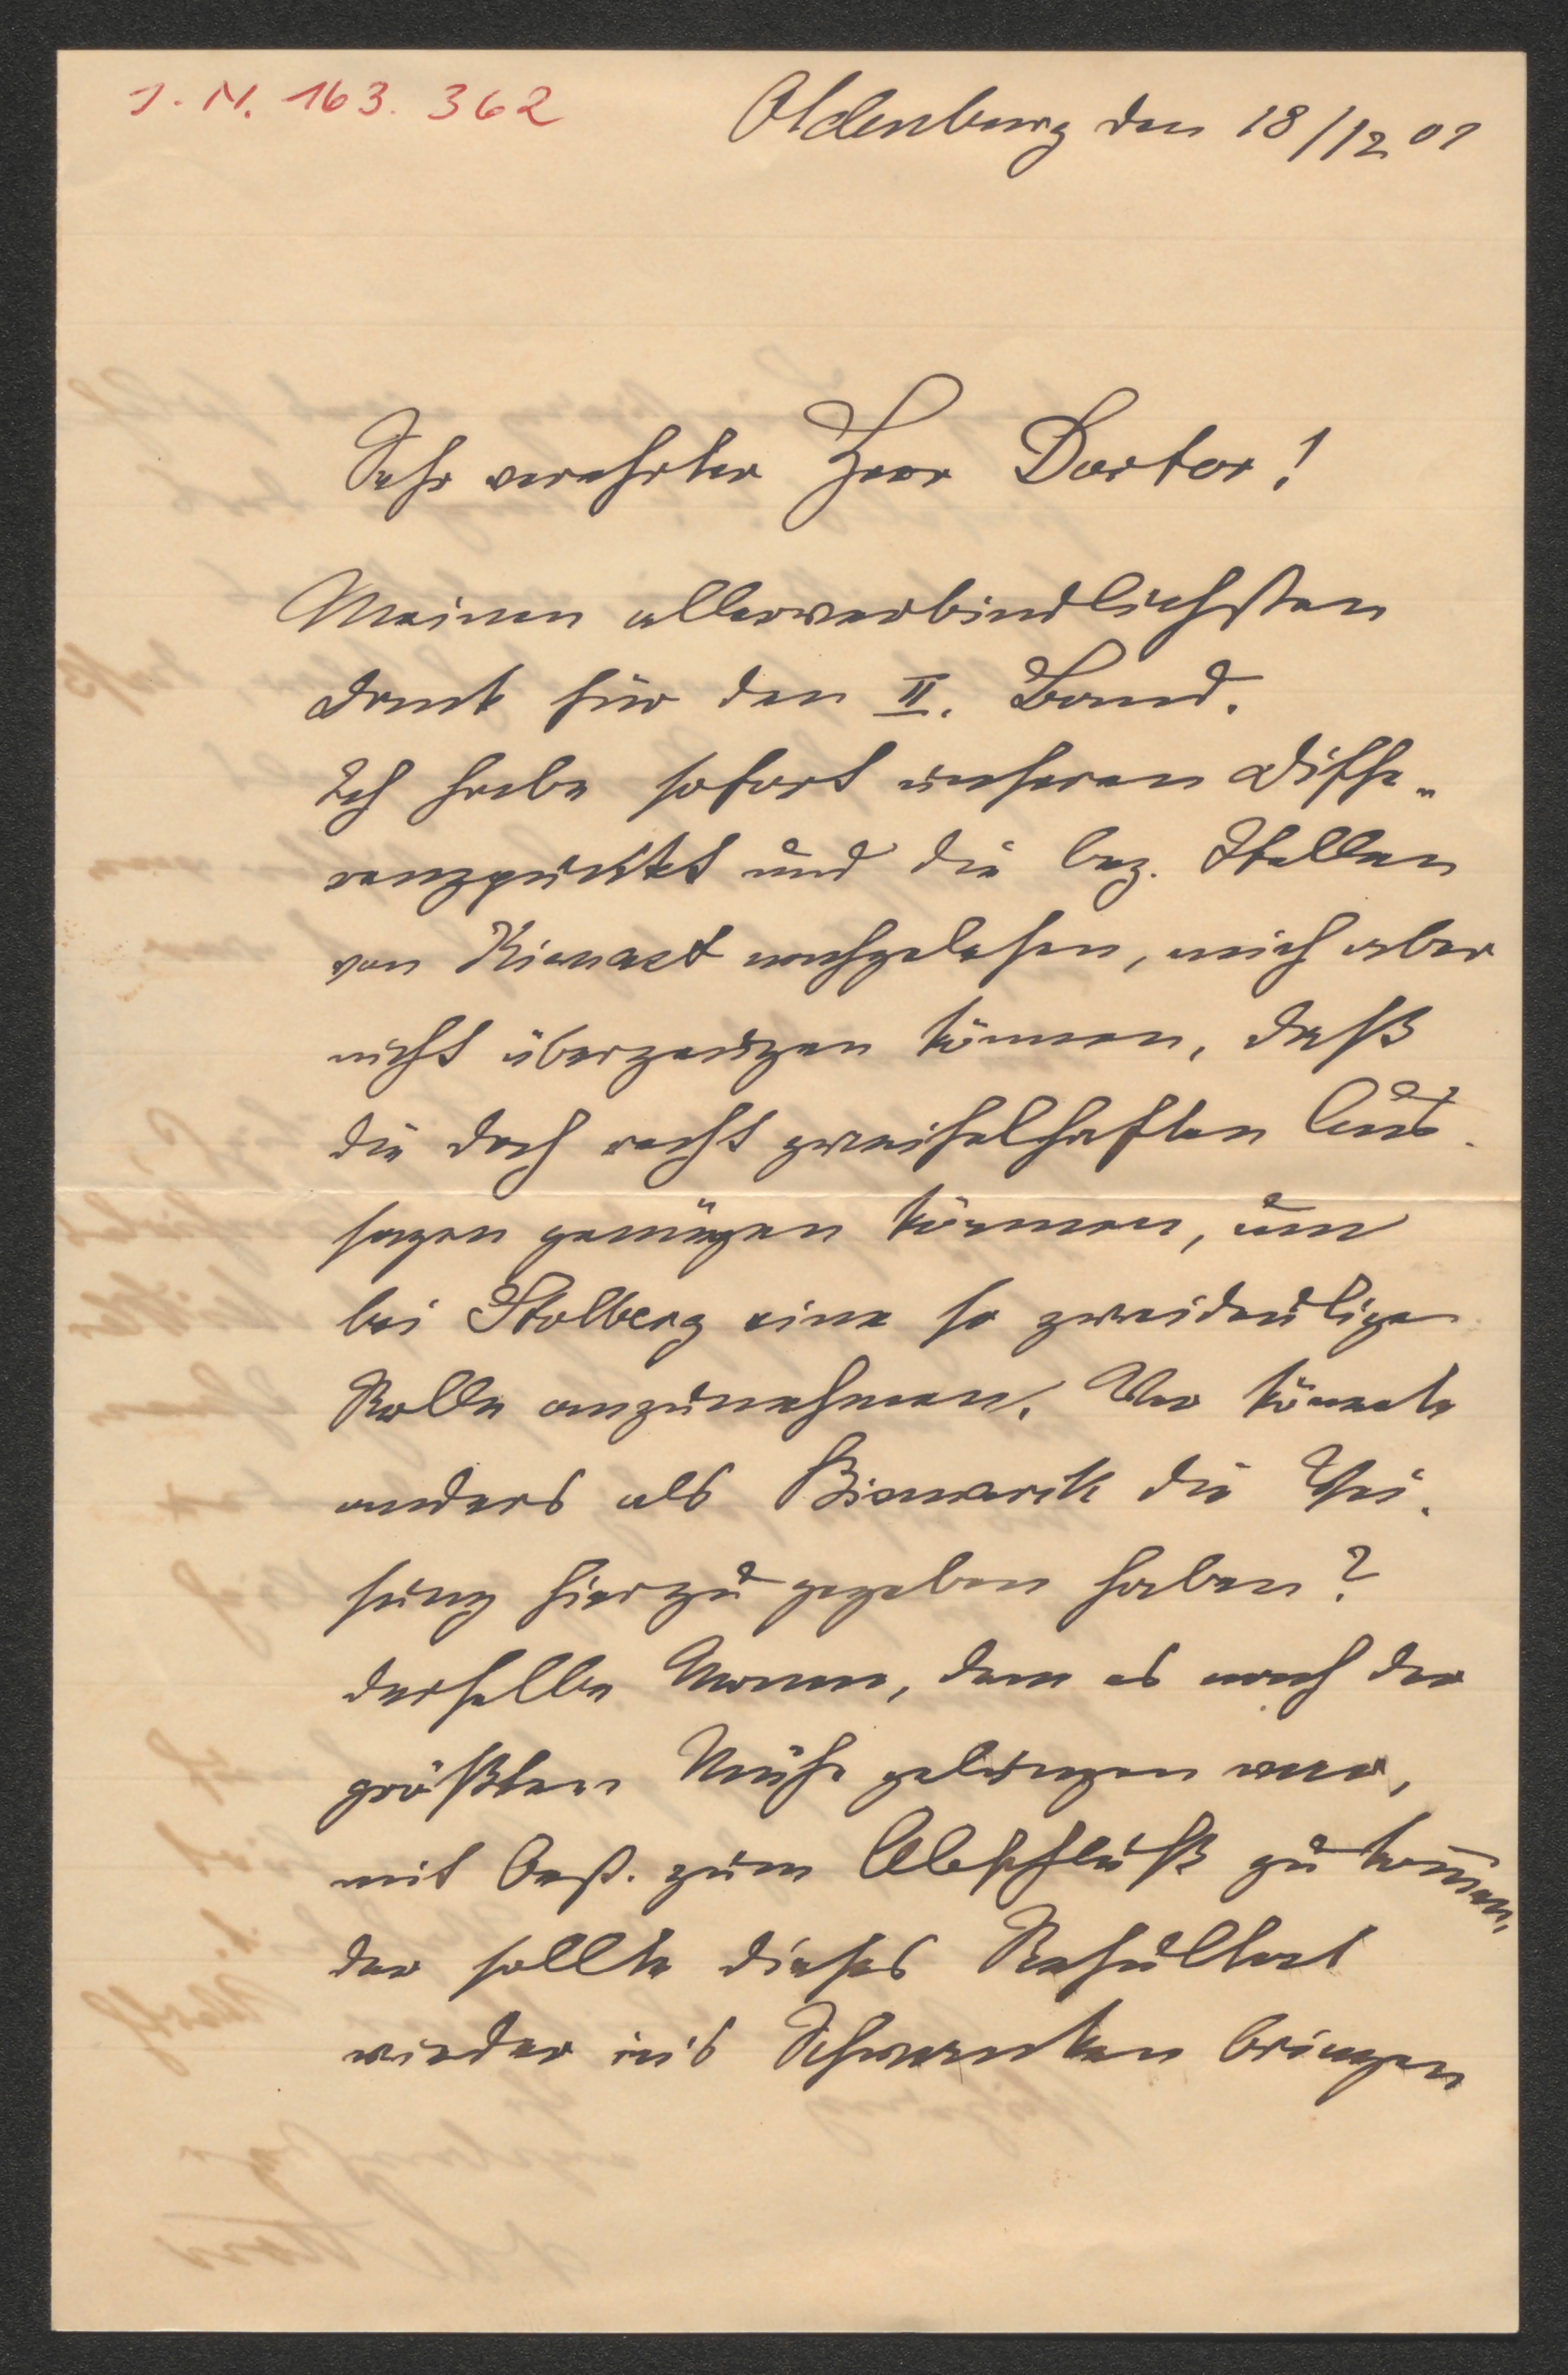 J. N. 163. 362
Oldenburg den 18/12 01
Sehr verehrter Herr Doctor!
Meinen allerverbindlichsten
Dank für den II. Band.
Ich habe sofort unseren Diffe-
renzpunkt und die bez. Stellen
von Kienast nachgelesen, mich aber
nicht überzeugen können, daß
die doch recht zweifelhaften Aus-
sagen genügen können, um
bei Stolberg eine so zweideutige
Rolle anzunehmen. Wer könnte
anders als Bismarck die Wei-
sung hierzu gegeben haben?
derselbe Mann, dem es nach der
größten Mühe gelungen war,
mit Oest. zum Abschluß zu kommen,
der sollte dieses Resultat
wieder in's Schwanken bringen